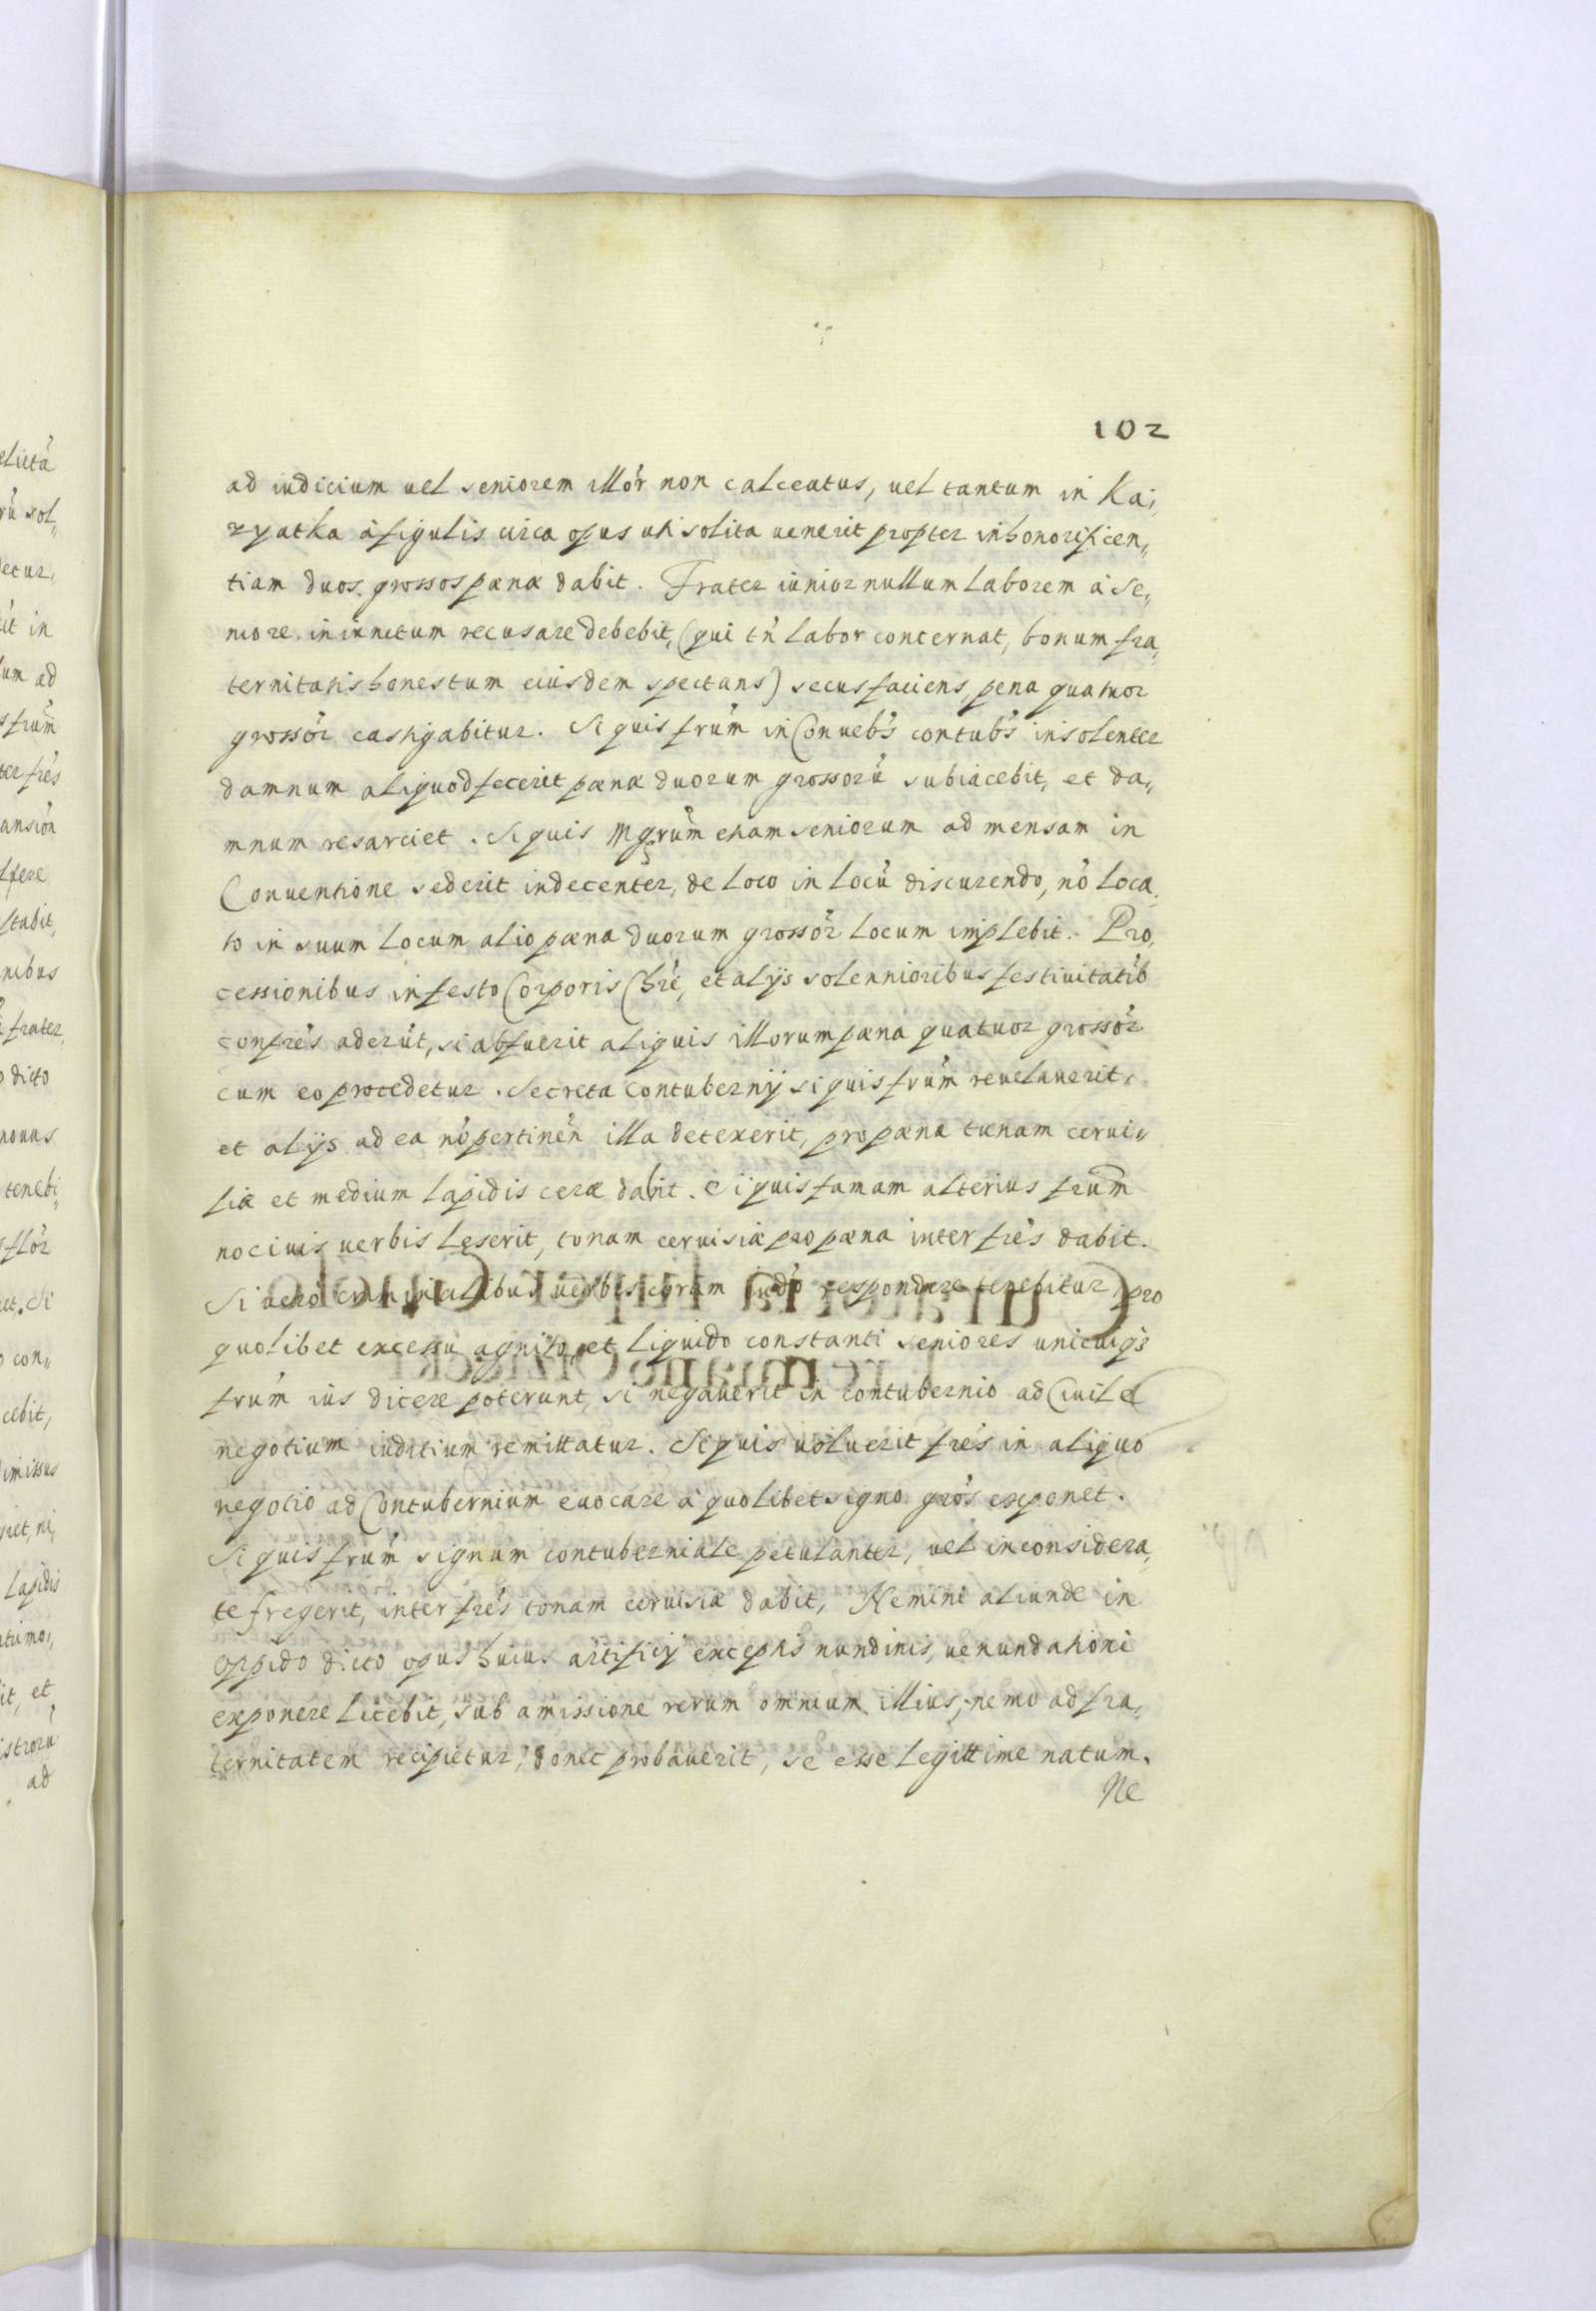 102
ad iudicium uel seniorem illór non calceatus, uel tantum in Kai„
zyatka à figulis circa opus uti solita uenerit propter inhonorificen„
tiam duos grossos pænæ dabit. Frater iunior nullum laborem à Se„
niore iniunctum recusare debebit, (qui tń labor concernat, bonum fra„
ternitatis honestum eiusdem spectans) secus faciens pena quatuor
grossór castigabitur. Si quis frúm in Conueb́s contub́s insolenter
damnum aliquod fecerit pænæ duorum grossorú subiacebit, et da„
mnum resarciet. Si quis Mgrúm etiam seniorum ad mensam in
Conuentione sederit indecenter, de loco in locú discurendo, nó loca„
to in suum locum alio pæna duorum grossór locum implebit. Pro„
cessionibus in festo Corporis Chri, et alijs solennioribus festiuitatib́
confrés aderút, si abfuerit aliquis illorum pæna quatuor grossór
cum eo procedetur. Secreta Contubernij si quis frúm reuelauerit,
et alijs ad ea nó pertineń illa detexerit, pro pæna tunam cerui„
siæ et medium lapidis ceræ dabit. Si quis famam alterius frúm
nociuis uerbis leserit, tonam ceruisiæ pro pæna inter frés dabit.
Si ueró criminalibus uerbis coram iudó respondere tenebitur, pro
quolibet excessu agnito, et liquido constanti seniores unicuiq́s
frúm ius dicere poterunt, si negauerit in contubernio ad Ciuile
negotium iuditium remittatur. Si quis uoluerit frés in aliquo
negotio ad Contubernium euocare à quolibet signo grós exponet.
Si quis frúm signum contuberniale petulanter, uel inconsidera„
te fregerit, inter frés tonam ceruisiæ dabit, Nemini aliunde in
oppido dicto opus huius artificij exceptis nundinis, uenundationi
exponere licebit, sub amissione rerum omnium illius, nemo ad fra„
ternitatem recipietur, donec probauerit, se esse legittime natum.
Ne